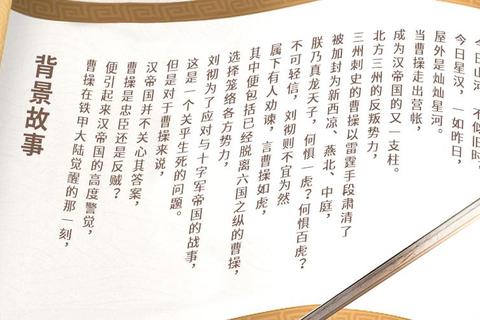 背景故事
曹操在铁甲大陆觉醒的那一刻,
便引起来汉帝国的高度警觉,
曹操是忠臣还是反贼?
汉帝国并不关心其答案,
但是对于曹操来说,
这是一个关乎生死的问题。
刘彻为了应对与十字军帝国的战事,
选择笼络各方势力,
其中便包括已经脱离六国之纵的曹操,
属下有人劝谏,言曹操如虎,
不可轻信,刘彻则不宜为然
朕乃真龙天子,何惧一虎?何惧百虎?
被加封为新西凉、燕北、中庭,
三州刺史的曹操以雷霆手段肃清了
北方三州的反叛势力,
成为汉帝国的又一支柱。
当曹操走出营帐,
屋外是灿灿星河。
今日星汉,一如昨日,
今日山河,不似旧时